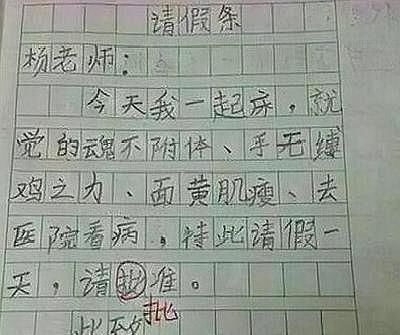 请假条
杨老师：
今天我一起床，就
觉的魂不附体、手无缚
鸡之力、面黄肌瘦、去
医院看病，特此请假一
天，请批准。
此致
批